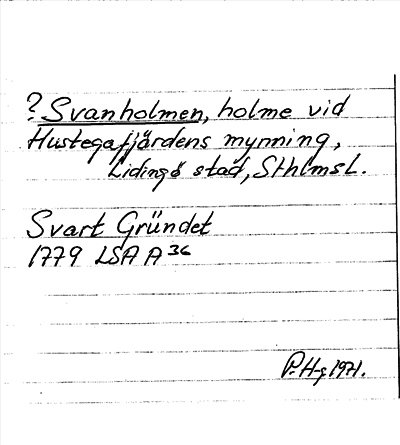 ? Svanholmen, holme vid
Hustegafjärdens mynning,
Lidingö stad, Sthlmsl.
Svart Gründet
1779 LSA A 36
P.H-g 1971.